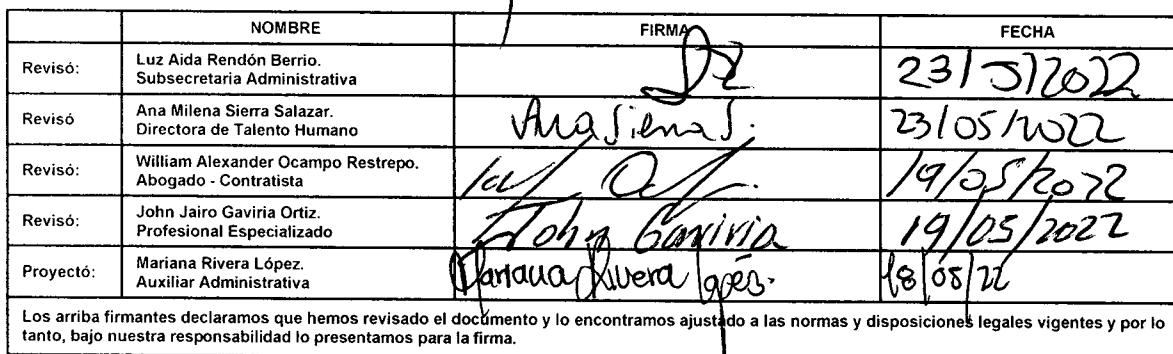 NOMBRE FIRMA FECHA
Revisó: Luz Aida Rendón Berrio.
Subsecretaria Administrativa
23/5/2022
Revisó Ana Milena Sierra Salazar.
Directora de Talento Humano
Ana Sierra S.
23/05/2022
Revisó: William Alexander Ocampo Restrepo.
Abogado - Contratista
19/05/2022
Revisó: John Jairo Gaviria Ortiz.
Profesional Especializado
John Gaviria
19/05/2022
Proyectó: Mariana Rivera López.
Auxiliar Administrativa
Mariana Rivera López.
18/05/22
Los arriba firmantes declaramos que hemos revisado el documento y lo encontramos ajustado a las normas y disposiciones legales vigentes y por lo
tanto, bajo nuestra responsabilidad lo presentamos para la firma.